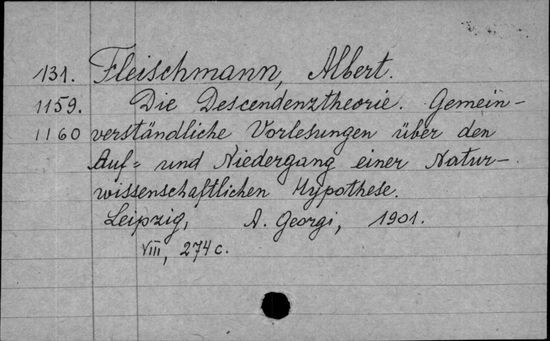 131. Fleischmann, Albert.
1159. Die Descendenztheorie. Gemein-
1160 verständliche Vorlesungen über den
Auf- und Niedergang einer Natur-
wissenschaftlichen Hypothese.
Leipzig, A. Georgi, 1901.
VIII, 274 c.